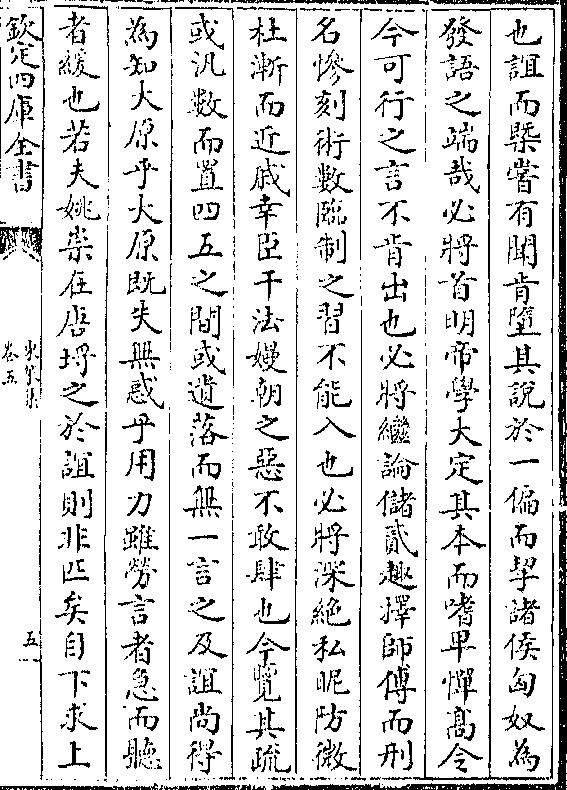 也誼而槩嘗有聞肯墮其說於一偏而挈諸侯匈奴為
發語之端哉必將首明帝學大定其本而嗜卑憚髙令
今可行之言不肯出也必將繼論儲貳趣擇師傅而刑
名慘刻術數臨制之習不能入也必將深絶私昵防微
杜漸而近戚幸臣干法嫚朝之惡不敢肆也今覽其疏
或汎數而置四五之間或遺落而無一言之及誼尚得
為知大原乎大原既失無惑乎用力雖勞言者急而聽
者緩也若夫姚崇在唐埒之於誼則非匹矣自下求上
欽定四庫全書
卷五
五